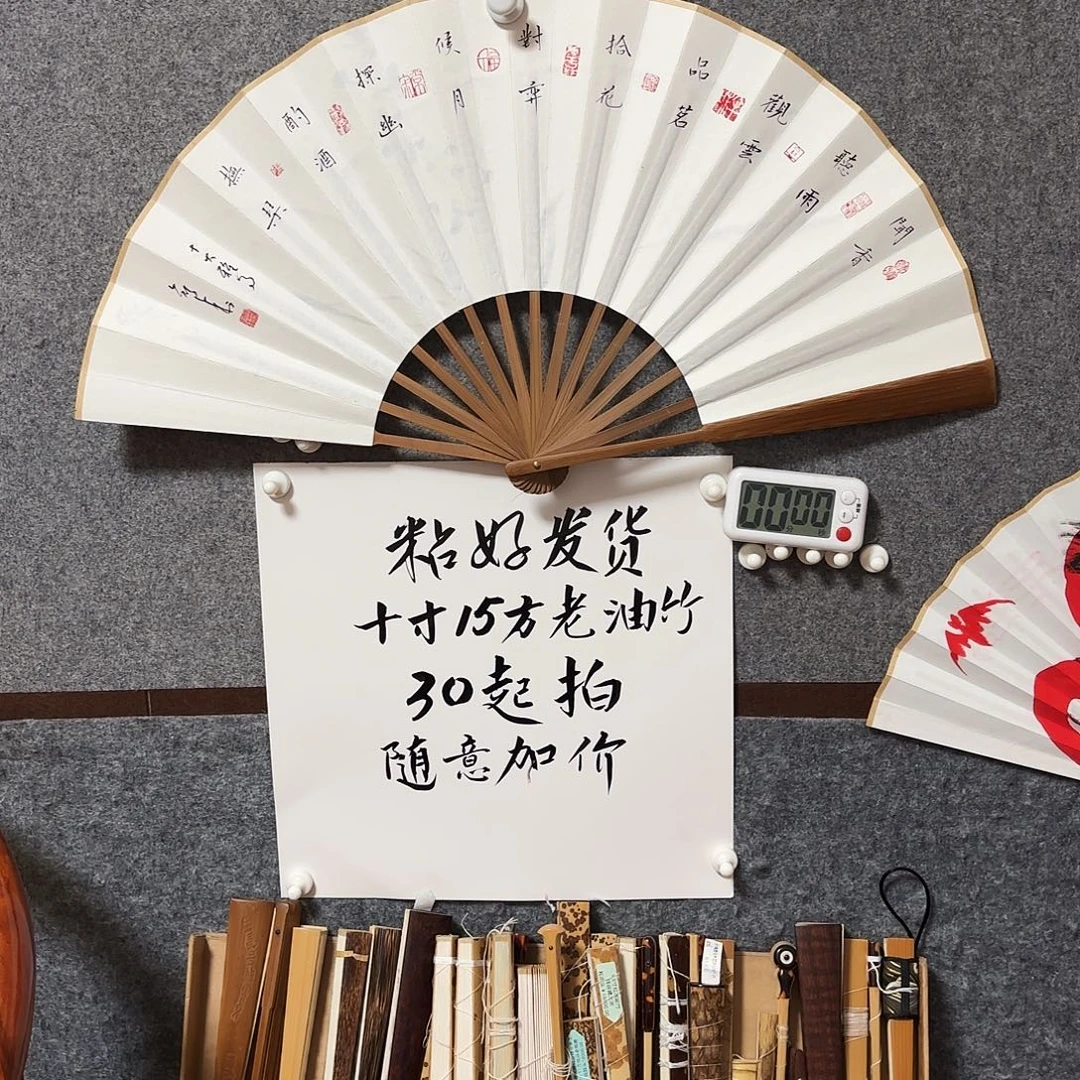 聞香
聽雨
觀雲
品茗
拾花
對弈
候月
探幽
酌酒
撫琹
十大雅事
粘好发货
十寸15方老油竹
30起拍
随意加价
00 00
分
秒